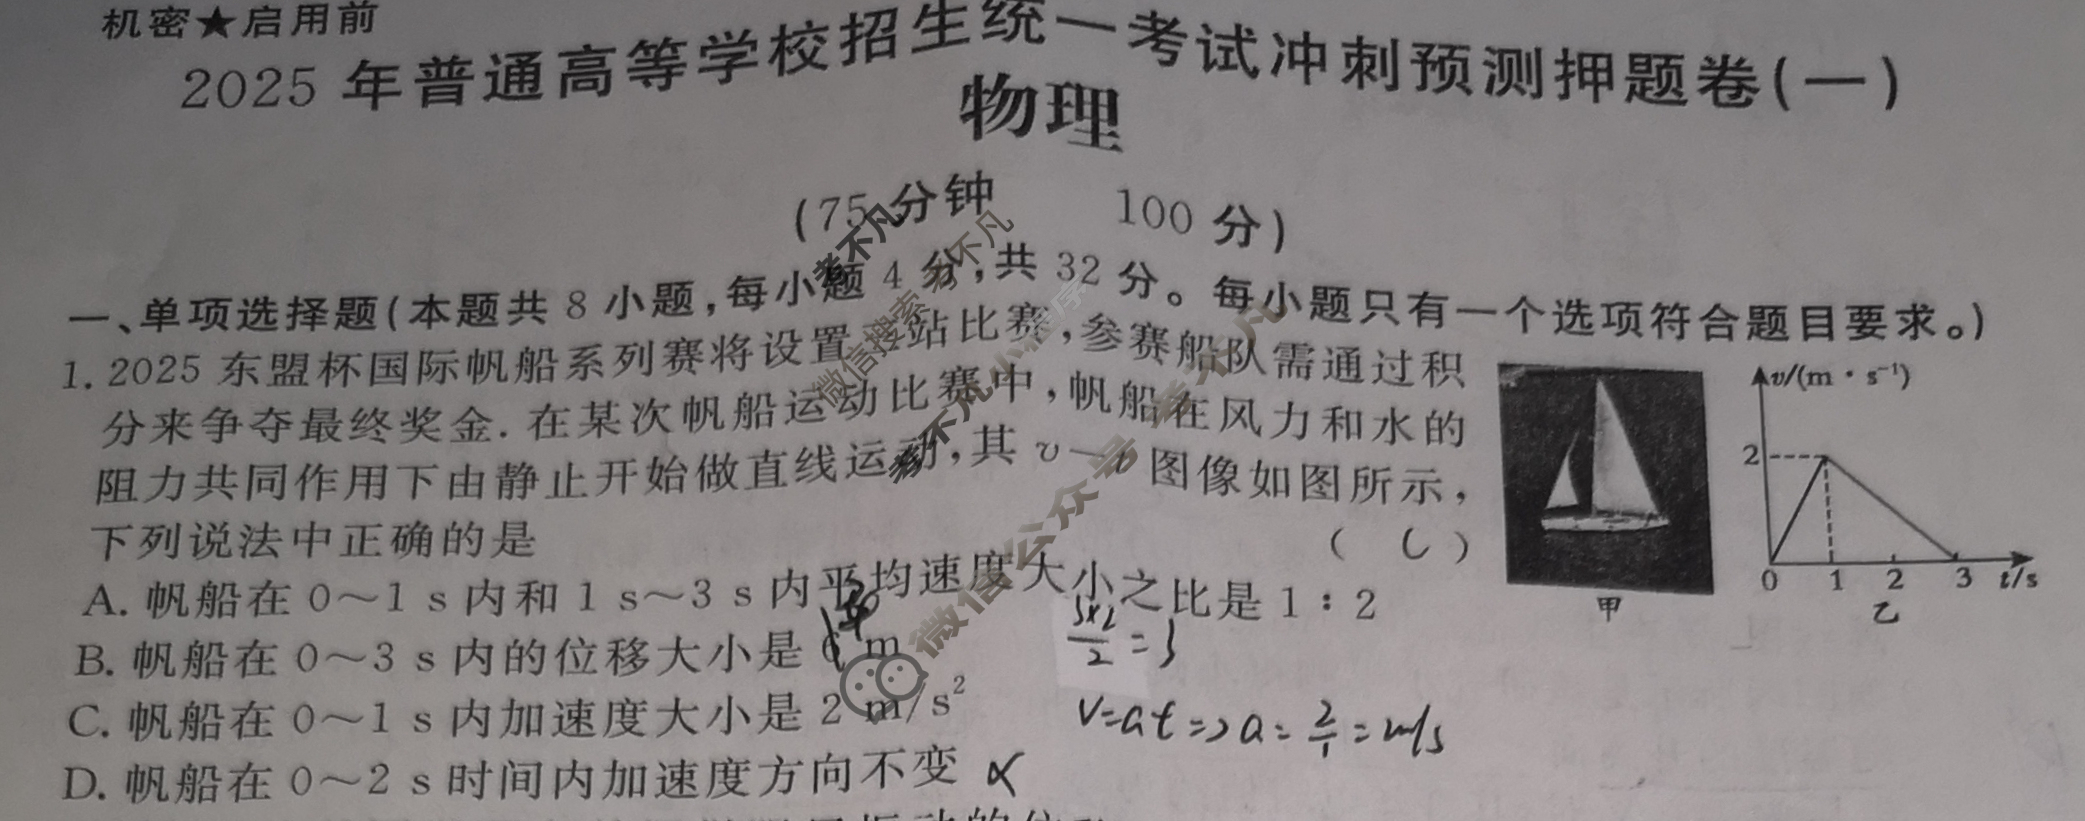 机密★启用前
2025年普通高等学校招生统一考试冲刺预测押题卷(一)
物理
(75分钟 100分)
一、单项选择题(本题共8小题,每小题4分,共32分。每小题只有一个选项符合题目要求。)
1. 2025东盟杯国际帆船系列赛将设置 站比赛,参赛船队需通过积
分来争夺最终奖金.在某次帆船运动比赛中,帆船在风力和水的
阻力共同作用下由静止开始做直线运动,其v—t图像如图所示,
下列说法中正确的是 ( C )
A. 帆船在0~1 s内和1 s~3 s内平均速度大小之比是1:2
B. 帆船在0~3 s内的位移大小是6 m
C. 帆船在0~1 s内加速度大小是2 m/s²
D. 帆船在0~2 s时间内加速度方向不变
3×2/2=3
v=at=>a=2/1=2m/s
v/(m·s⁻¹)
2
0 1 2 3 t/s
甲 乙
考不凡
考不凡
微信搜索
考不凡小程序
微信公众号:考不凡